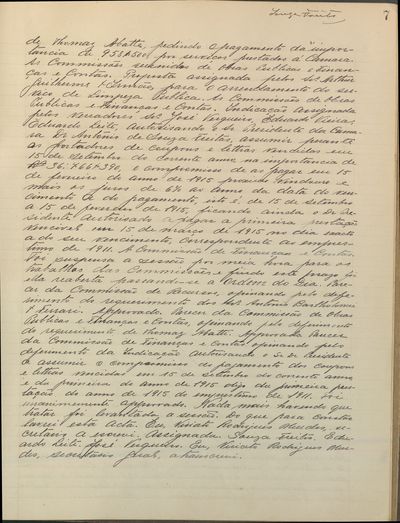 Souza Freitas
7
de Thomaz Abatte, pedindo o pagamento da "impor-
tancia de 953$500, por serviços prestados á Camara.
As Commissões reunidas de Obras Publicas e Finan-
ças e Contas. Proposta assignada pelos Srs.
Guilherme & Irmãos, para o arrendamento do ser-
viço de Limpeza Publica. As Commissões de Obras
Publicas e Finanças e Contas. Indicação assignada
pelos Vereadores Srs. José Vergueiro, Eduardo Vieira,
Eduardo Leite, auctorisando o Sr. Presidente da Cama-
ra Dr. Antonio de Souza Freitas, assumir perante
os portadores de coupons e lettras vencidas em
15 de Setembro do corrente anno na importancia de
o compromisso de os pagar em 15
de fevereiro do anno de 1915, proximo vindouro e
mais os juros de 6% ao anno da data do ven-
cimento á do pagamento, isto é, de 15 de Setembro
a 15 de 1915, ficando ainda o Sr. Pre-
sidente auctorisado a a primeira prestação
vencivel em 15 de março de 1915 no dia exacto
a do seu vencimento, correspondente ao empres-
timo de 1911. A Commissão de Finanças e Contas.
Foi suspensa a sessão por meia hora para os
trabalhos das Commissões e findo este prazo foi
ella reaberta passando-se a Ordem do dia. Pare-
cer da Commissão de opinando pelo defe-
rimento do requerimento dos Srs. Antonio Bartholomeu
Approvado. Parecer da Commissão de Obras
Publicas e Finanças e Contas, opinando pelo deferimento
do requerimento de Thomaz Abatte. Approvado. Parecer
da Commissão de Finanças e Contas opinando pelo
deferimento da Indicação auctorisando o Sr. Presidente
a assumir o compromisso de pagamento dos coupons
e lettras vencidas em 15 de Setembro do corrente anno
e da primeira do anno de 1915 digo da primeira pres-
tação do anno de 1915 do emprestimo de 1911. Foi
unanimemente approvado. Nada mais havendo que
tratar foi levantada a sessão. Do que para constar
lavrei esta acta. Eu, Rodrigues Mendes, se-
cretario a escrevi. Assignados. Souza Freitas. Edu-
ardo Leite. José Vergueiro. Eu, Rodrigues Men-
des, secretario geral, a transcrevi.